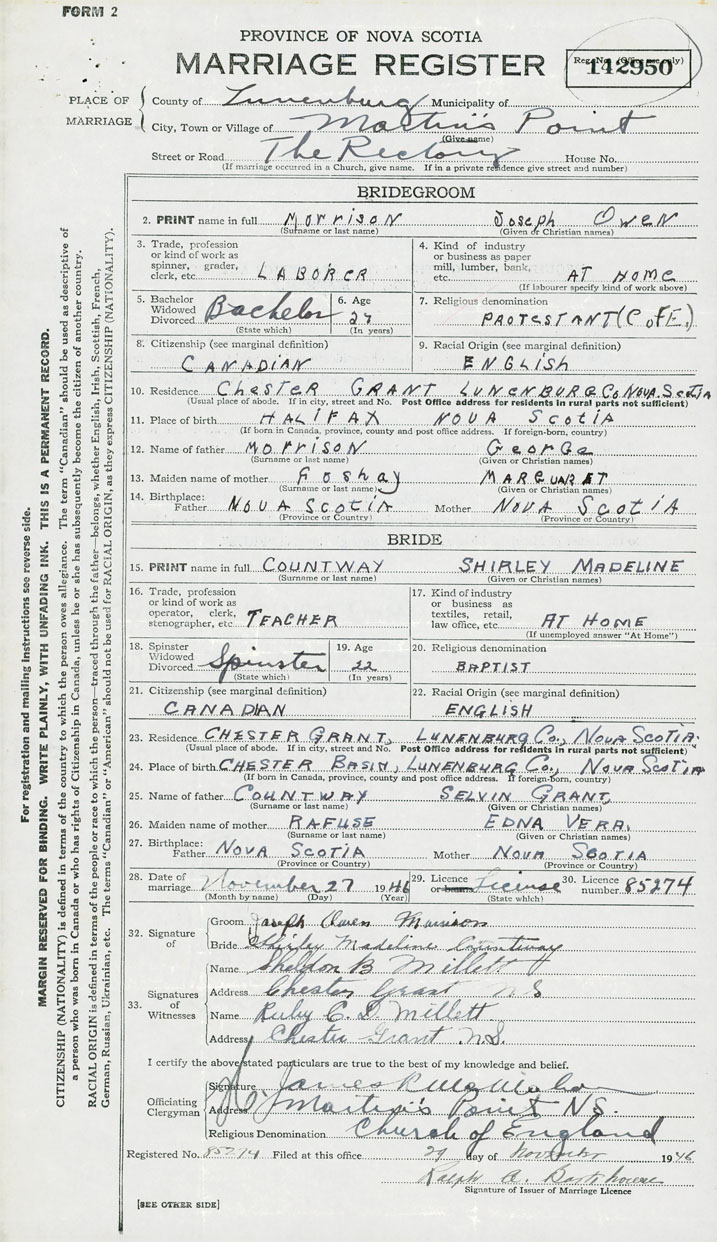 FORM 2
PROVINCE OF NOVA SCOTIA
MARRIAGE REGISTER
Reg. No. (Office use only)
142950
PLACE OF MARRIAGE
County of Lunenburg Municipality of
City, Town or Village of Martin's Point
(Give name)
Street or Road The Rectory House No.
(If marriage occurred in a Church, give name. If in a private residence give street and number)
BRIDEGROOM
2. PRINT name in full Morrison Joseph Owen
(Surname or last name) (Given or Christian names)
3. Trade, profession or kind of work as spinner, grader, clerk, etc. LABORER
4. Kind of industry or business as paper mill, lumber, bank, etc. AT HOME
(If labourer specify kind of work above)
5. Bachelor Widowed Divorced Bachelor
(State which)
6. Age 27
(In years)
7. Religious denomination PROTESTANT (C of E.)
8. Citizenship (see marginal definition) CANADIAN
9. Racial Origin (see marginal definition) ENGLISH
10. Residence Chester GRANT LUNENBURG Co NOVA Scotia
(Usual place of abode. If in city, street and No. Post Office address for residents in rural parts not sufficient)
11. Place of birth HALIFAX NOVA Scotia
(If born in Canada, province, county and post office address. If foreign-born, country)
12. Name of father Morrison George
(Surname or last name) (Given or Christian names)
13. Maiden name of mother Goshay MARGUARET
(Surname or last name) (Given or Christian names)
14. Birthplace: Father NOVA Scotia Mother NOVA Scotia
(Province or Country) (Province or Country)
BRIDE
15. PRINT name in full COUNTWAY SHIRLEY MADELINE
(Surname or last name) (Given or Christian names)
16. Trade, profession or kind of work as operator, clerk, stenographer, etc. TEACHER
17. Kind of industry or business as textiles, retail, law office, etc. AT HOME
(If unemployed answer "At Home")
18. Spinster Widowed Divorced Spinster
(State which)
19. Age 22
(In years)
20. Religious denomination BAPTIST
21. Citizenship (see marginal definition) CANADIAN
22. Racial Origin (see marginal definition) ENGLISH
23. Residence CHESTER GRANT, LUNENBURG Co., NOVA SCOTIA.
(Usual place of abode. If in city, street and No. Post Office address for residents in rural parts not sufficient)
24. Place of birth CHESTER BASIN, LUNENBURG Co., NOVA SCOTIA
(If born in Canada, province, county and post office address. If foreign-born, country)
25. Name of father COUNTWAY SELVIN GRANT,
(Surname or last name) (Given or Christian names)
26. Maiden name of mother RAFUSE EDNA VERA.
(Surname or last name) (Given or Christian names)
27. Birthplace: Father NOVA SCOTIA Mother NOVA SCOTIA
(Province or Country) (Province or Country)
28. Date of marriage November 27 1946
(Month by name) (Day) (Year)
29. Licence or banns License
(State which)
30. Licence number 85274
32. Signature of
Groom Joseph Owen Morrison
Bride Shirley Madeline Countway
33. Signatures of Witnesses
Name Sheldon B Millett
Address Chester Grant N S
Name Ruby C. D. Millett
Address Chester Grant N.S.
I certify the above stated particulars are true to the best of my knowledge and belief.
Officiating Clergyman
Signature James
Address Martin's Point N.S.
Religious Denomination Church of England
Registered No. 85274 Filed at this office 27 day of November 1946
Ralph A.
Signature of Issuer of Marriage Licence
[SEE OTHER SIDE]
For registration and mailing instructions see reverse side.
MARGIN RESERVED FOR BINDING. WRITE PLAINLY, WITH UNFADING INK. THIS IS A PERMANENT RECORD.
CITIZENSHIP (NATIONALITY) is defined in terms of the country to which the person owes allegiance. The term "Canadian" should be used as descriptive of
a person who was born in Canada or who has rights of Citizenship in Canada, unless he or she has subsequently become the citizen of another country.
RACIAL ORIGIN is defined in terms of the people or race to which the person—traced through the father—belongs, whether English, Irish, Scottish, French,
German, Russian, Ukrainian, etc. The terms "Canadian" or "American" should not be used for RACIAL ORIGIN, as they express CITIZENSHIP (NATIONALITY).